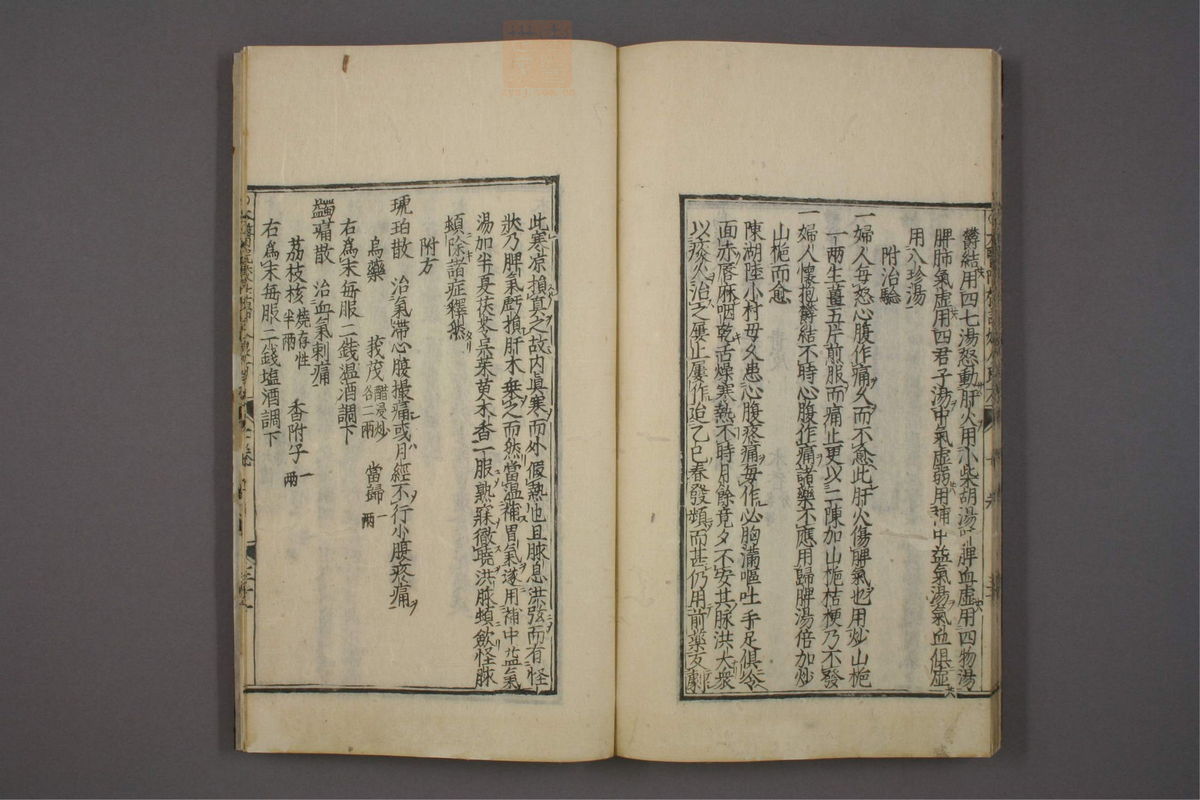 鬱結用四七湯怒動肝火用小柴胡湯脾血虛用四物湯
脾肺氣虛用四君子湯中氣虛弱用補中益氣湯氣血俱虛
用八珍湯
附治驗
一婦人每怒心腹作痛久而不愈此肝火傷脾氣也用炒山梔
一兩生薑五片煎服而痛止更以二陳加山梔桔梗乃不發
一婦人懷抱鬱結不時心腹作痛諸藥不應用歸脾湯倍加炒
山梔而愈
陳湖陸小村母久患心腹疼痛每作必胸滿嘔吐手足俱冷
面赤唇麻咽乾舌燥寒熱不時月餘竟夕不安其脉洪大衆
以痰火治之屢止屢作迨乙巳春發頻而甚仍用前藥反劇
此寒凉損真之故内真寒而外假熱也且脉息洪弦而有怪
狀乃脾氣虧損肝木乗之而然當温補胃氣遂用補中益氣
湯加半夏茯苓吴茱萸木香一服熟寐徹曉洪脉頓歛怪脉
頓除諸症釋然
附方
琥珀散 治氣滯心腹撮痛或月經不行小腹疼痛
烏藥 莪茂醋浸炒各二兩 當歸一兩
右為末每服二錢温酒調下
蠲痛散 治血氣刺痛
荔枝核燒存性半兩 香附子一兩
右為末每服二錢塩酒調下